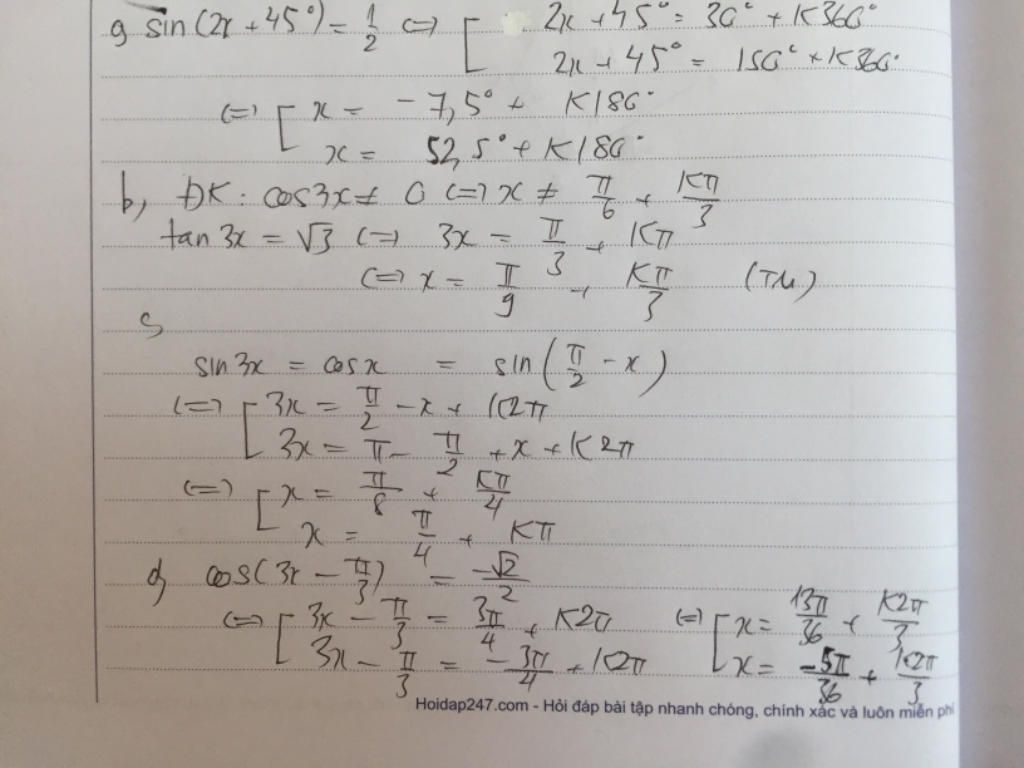 a, sin(2x+45°) = 1/2 <=> [ 2x+45° = 30° + K360°
2x+45° = 150° + K360°
<=> [ x = -7,5° + K180°
x = 52,5° + K180°
b, ĐK: cos3x ≠ 0 <=> x ≠ π/6 + Kπ/3
tan 3x = √3 <=> 3x = π/3 + Kπ
<=> x = π/9 + Kπ/3 (TM)
c
sin3x = cosx = sin(π/2 - x)
<=> [ 3x = π/2 - x + K2π
3x = π - π/2 + x + K2π
<=> [ x = π/8 + Kπ/4
x = π/4 + Kπ
d, cos(3x - π/3) = -√2/2
<=> [ 3x - π/3 = 3π/4 + K2π <=> [ x = 13π/36 + K2π/3
3x - π/3 = -3π/4 + K2π x = -5π/36 + K2π/3
Hoidap247.com - Hỏi đáp bài tập nhanh chóng, chính xác và luôn miễn phí